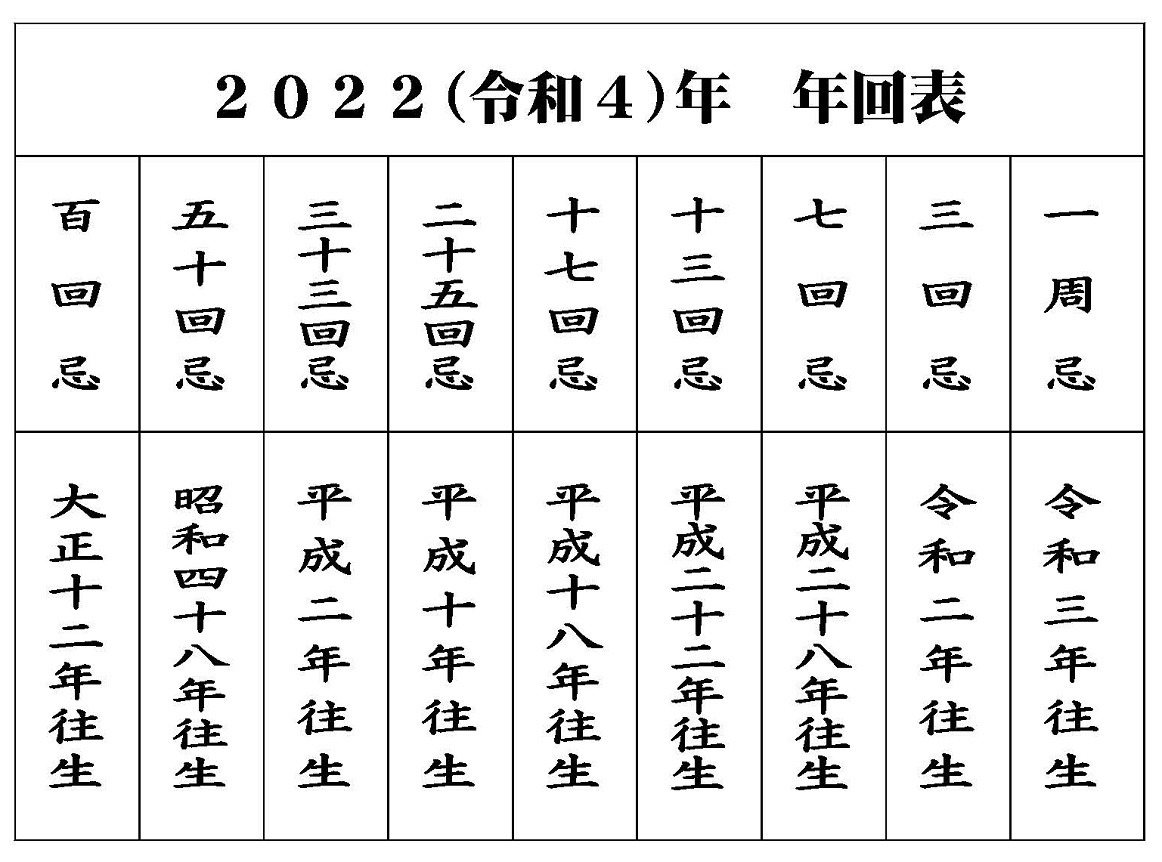 ２０２２(令和４)年　年回表
一周忌
令和三年往生
三回忌
令和二年往生
七回忌
平成二十八年往生
十三回忌
平成二十二年往生
十七回忌
平成十八年往生
二十五回忌
平成十年往生
三十三回忌
平成二年往生
五十回忌
昭和四十八年往生
百回忌
大正十二年往生